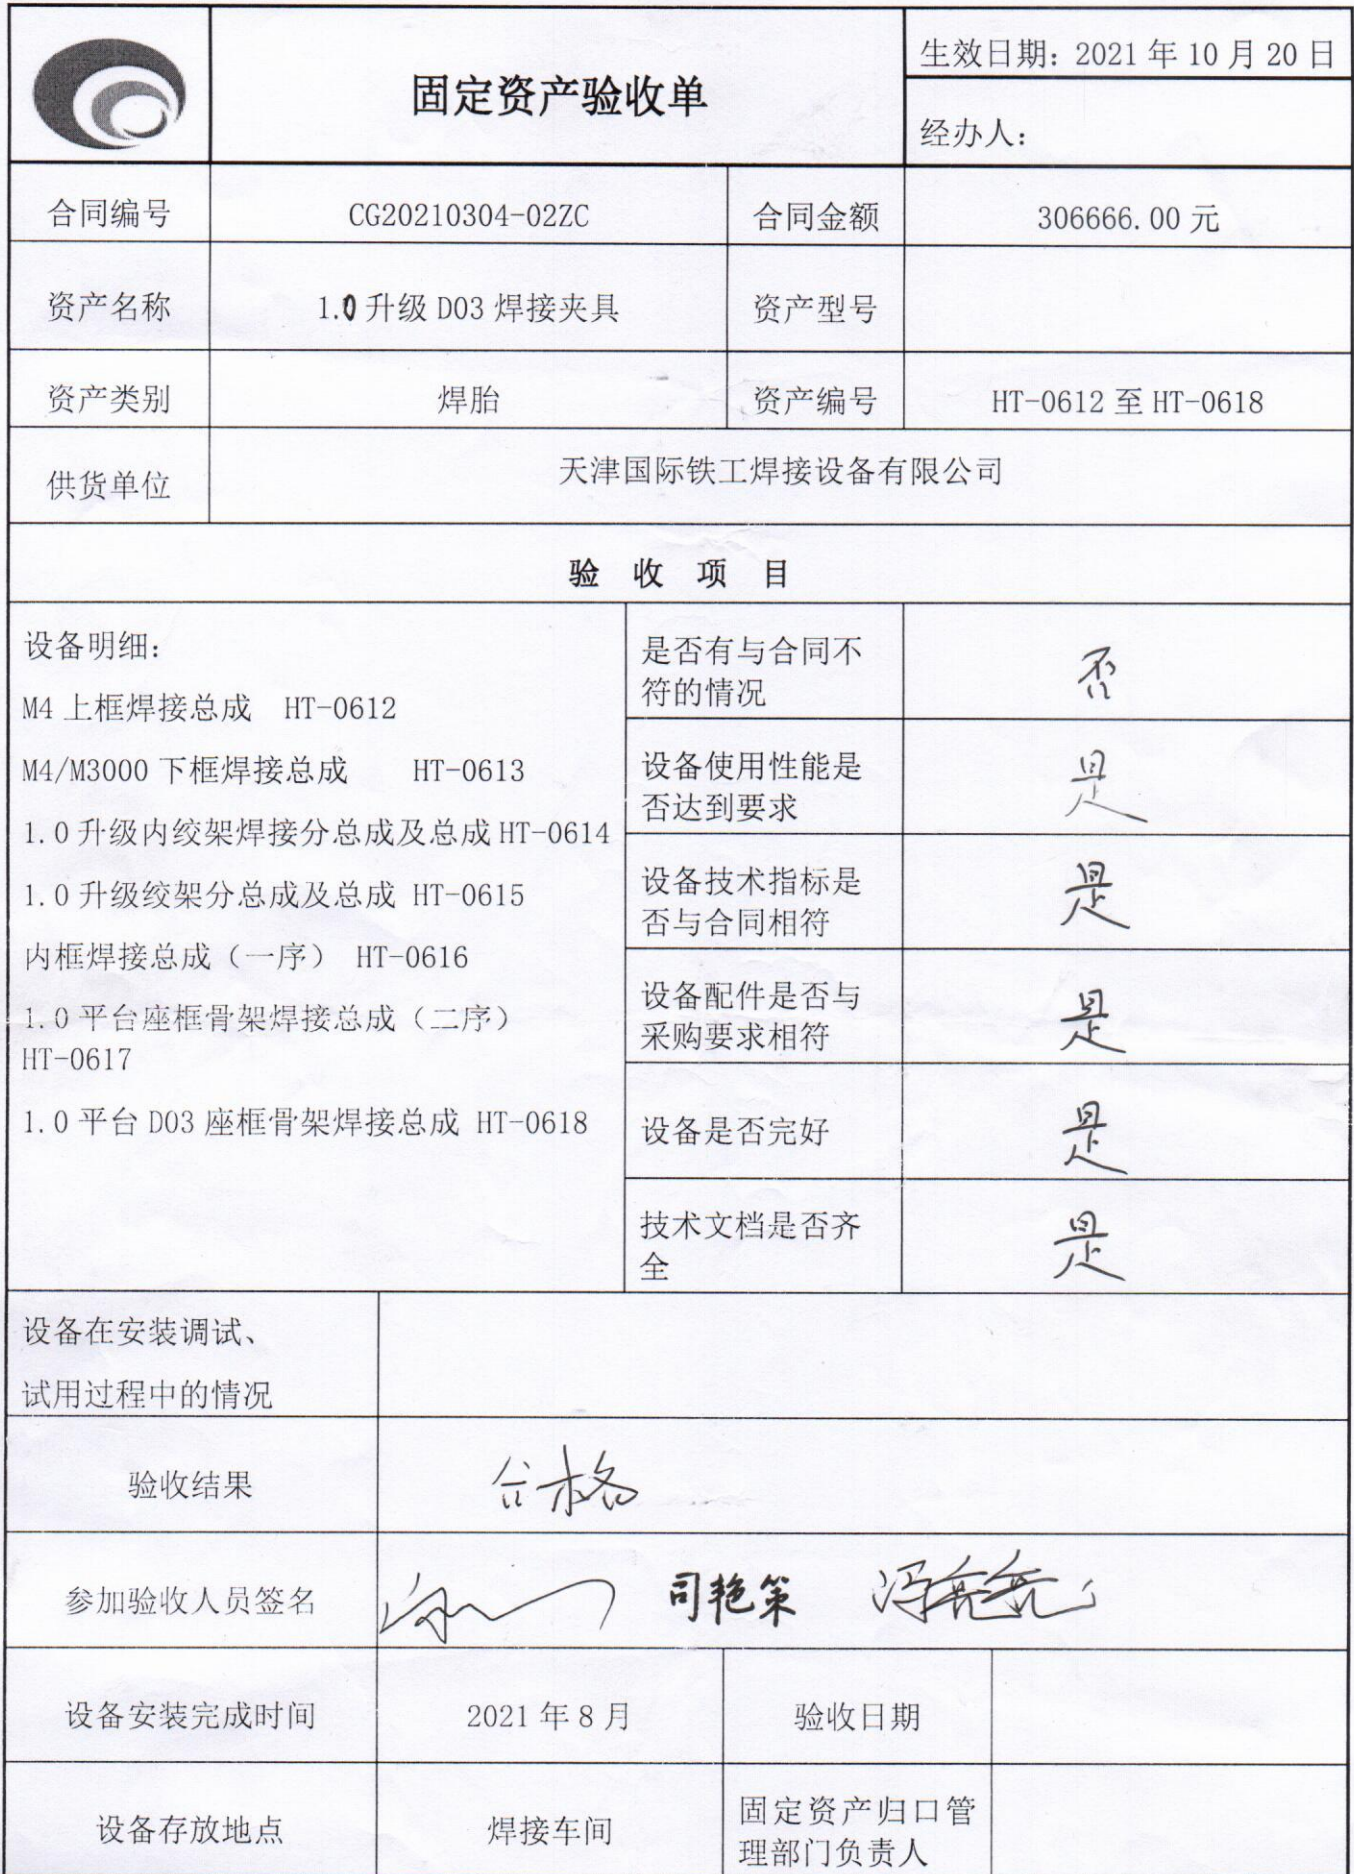 固定资产验收单
生效日期: 2021 年 10 月 20 日
经办人:
合同编号 CG20210304-02ZC 合同金额 306666.00 元
资产名称 1.0 升级 D03 焊接夹具 资产型号
资产类别 焊胎 资产编号 HT-0612 至 HT-0618
供货单位 天津国际铁工焊接设备有限公司
验 收 项 目
设备明细:
M4 上框焊接总成 HT-0612
M4/M3000 下框焊接总成 HT-0613
1.0 升级内绞架焊接分总成及总成 HT-0614
1.0 升级绞架分总成及总成 HT-0615
内框焊接总成（一序） HT-0616
1.0 平台座框骨架焊接总成（二序）
HT-0617
1.0 平台 D03 座框骨架焊接总成 HT-0618
是否有与合同不
符的情况
否
设备使用性能是
否达到要求
是
设备技术指标是
否与合同相符
是
设备配件是否与
采购要求相符
是
设备是否完好
是
技术文档是否齐
全
是
设备在安装调试、
试用过程中的情况
验收结果 合格
参加验收人员签名 司艳策 冯亮亮
设备安装完成时间 2021 年 8 月 验收日期
设备存放地点 焊接车间
固定资产归口管
理部门负责人